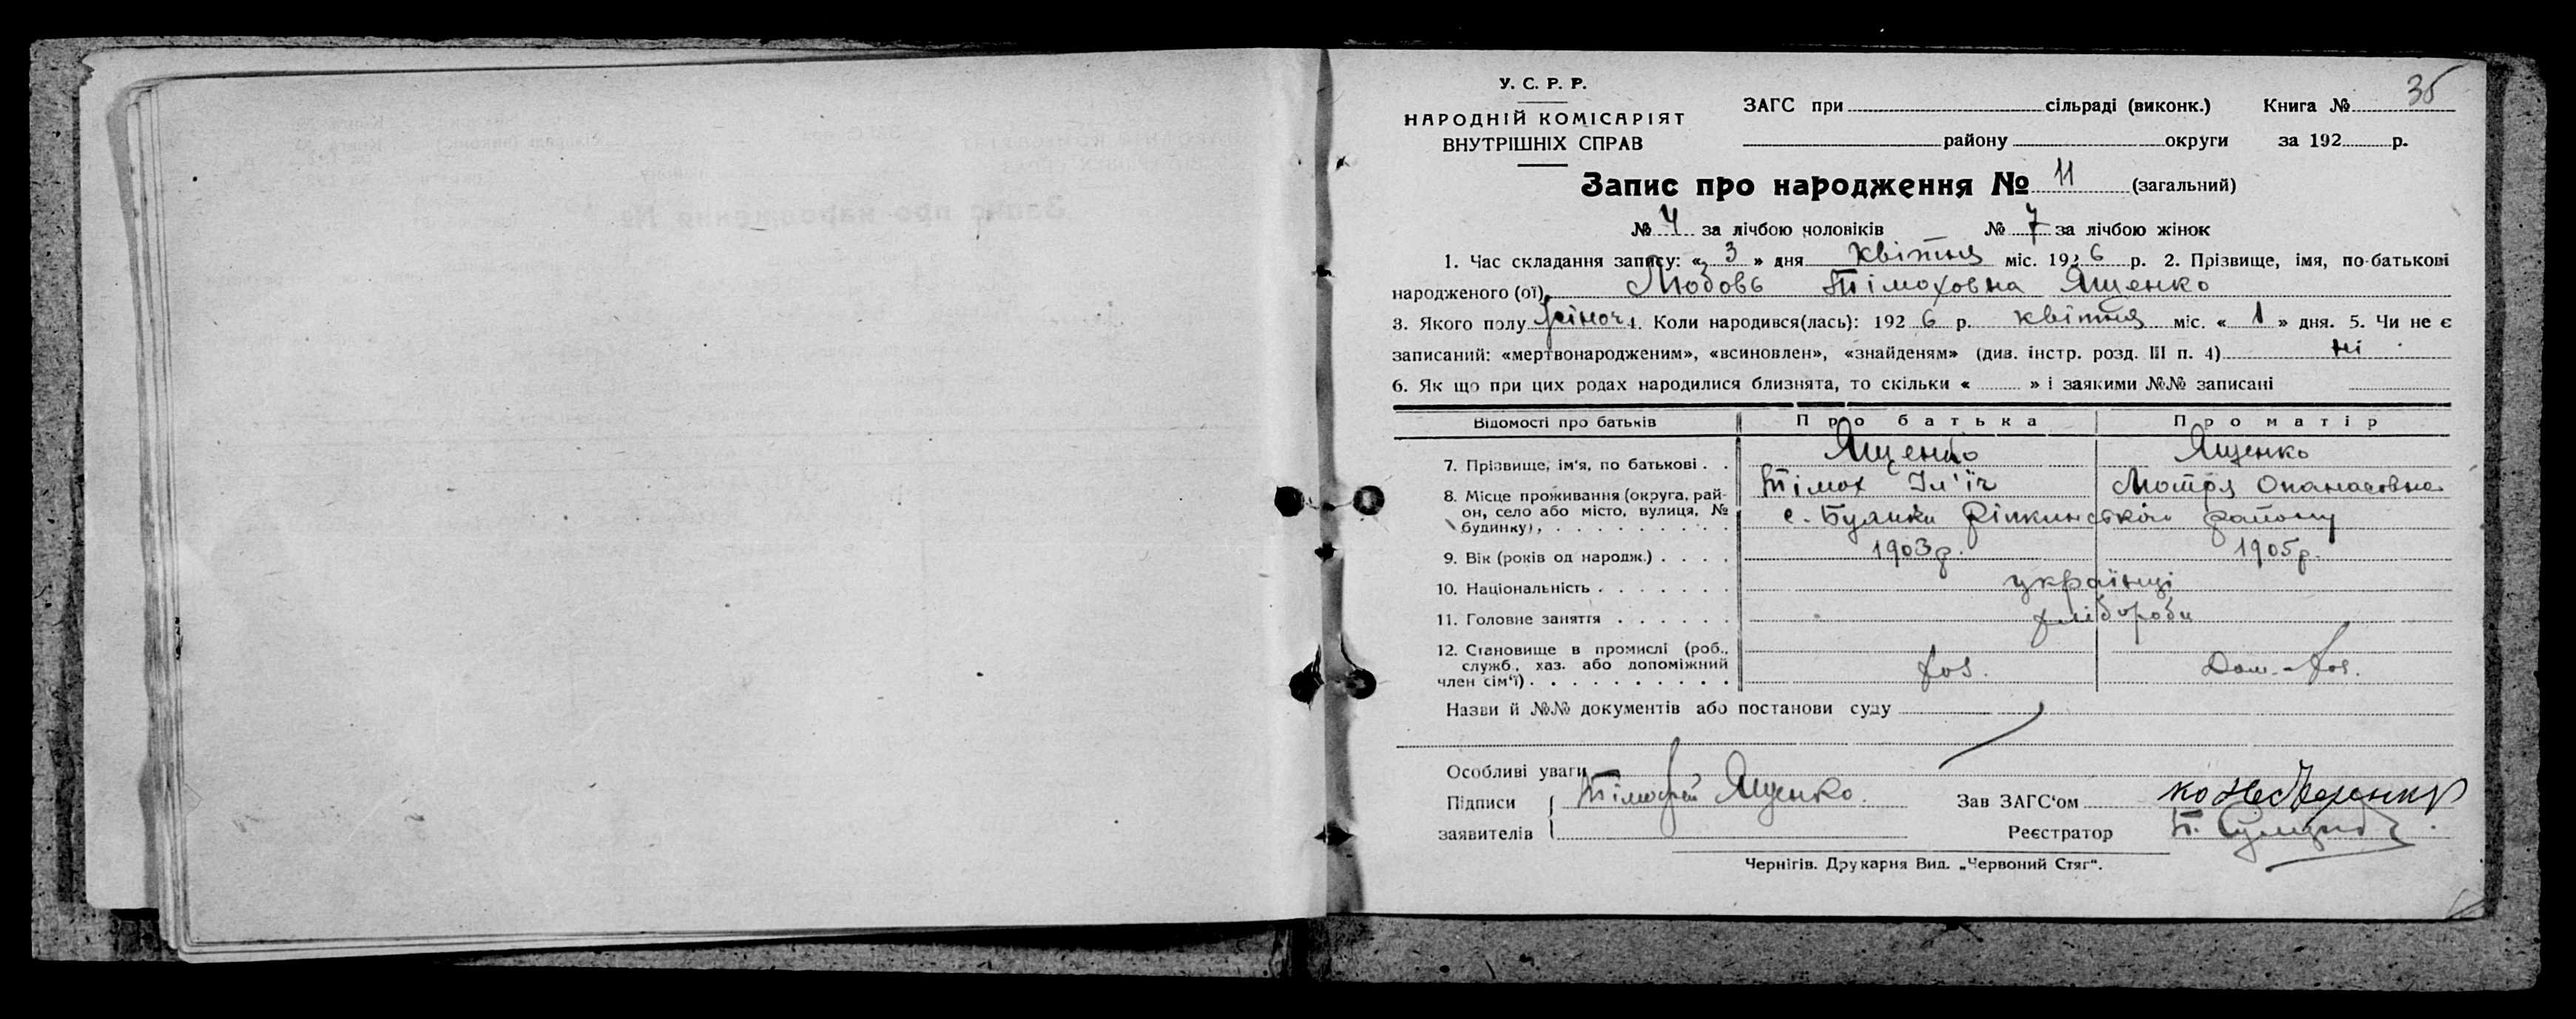 У. С. Р. Р.
НАРОДНІЙ КОМІСАРІЯТ
ВНУТРІШНІХ СПРАВ
ЗАГС при сільраді (виконк.) Книга № 35
району округи за 192 р.
Запис про народження № 11 (загальний)
№ 4 за лічбою чоловіків № 7 за лічбою жінок
1. Час складання запису: « 3 » дня квітня міс. 1926 р. 2. Прізвище, імя, по-батькові
народженого (ої) Любовь Тімоховна Ященко
3. Якого полу жіноч 4. Коли народився(лась): 192 6 р. квітня міс. « 1 » дня. 5. Чи не є
записаний: «мертвонародженим», «всиновлен», «знайденям» (див. інстр. розд. III п. 4) ні
6. Як що при цих родах народилися близнята, то скільки « » і заякими №№ записані
Відомості про батьків Про батька Про матір
7. Прізвище, ім'я, по батькові . . Ященко Ященко
Тімох Іл'їч Мотря Опанасовна
8. Місце проживання (округа, рай-
он, село або місто, вулиця, №
будинку), с. Буянки Ріпкинської району
9. Вік (років од народж.) . . . . 1903 р. 1905 р.
10. Національність . . . . . . . українці
11. Головне заняття . . . . . . хлібороби
12. Становище в промислі (роб.,
служб., хаз. або допоміжний
член сім'ї) . . . . . . . . . . хоз. Дом.-хоз.
Назви й №№ документів або постанови суду
Особливі уваги
Підписи Тімофей Ященко. Зав ЗАГС'ом
заявителів Реєстратор
Чернігів. Друкарня Вид. „Червоний Стяг".